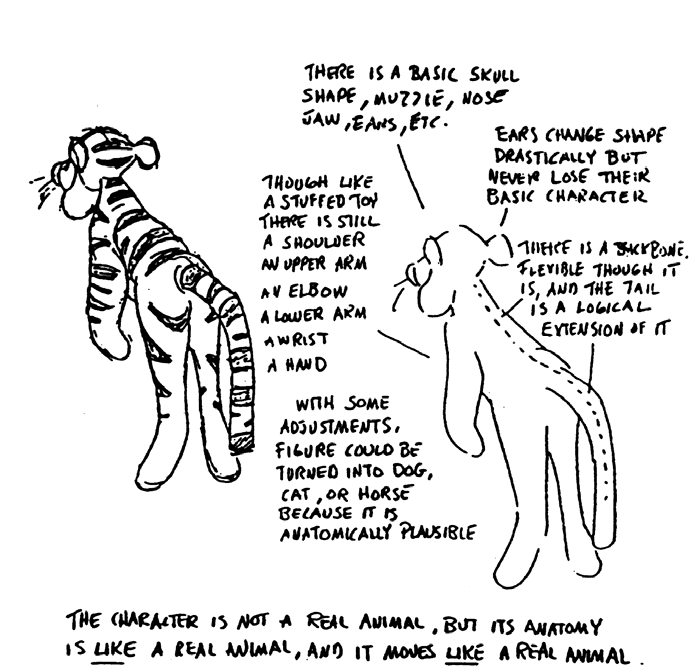 THERE IS A BASIC SKULL
SHAPE, MUZZLE, NOSE
JAW, EARS, ETC.
EARS CHANGE SHAPE
DRASTICALLY BUT
NEVER LOSE THEIR
BASIC CHARACTER
THOUGH LIKE
A STUFFED TOY
THERE IS STILL
A SHOULDER
AN UPPER ARM
AN ELBOW
A LOWER ARM
A WRIST
A HAND
THERE IS A BACKBONE,
FLEXIBLE THOUGH IT
IS, AND THE TAIL
IS A LOGICAL
EXTENSION OF IT
WITH SOME
ADJUSTMENTS,
FIGURE COULD BE
TURNED INTO DOG,
CAT, OR HORSE
BECAUSE IT IS
ANATOMICALLY PLAUSIBLE
THE CHARACTER IS NOT A REAL ANIMAL, BUT ITS ANATOMY
IS LIKE A REAL ANIMAL, AND IT MOVES LIKE A REAL ANIMAL.